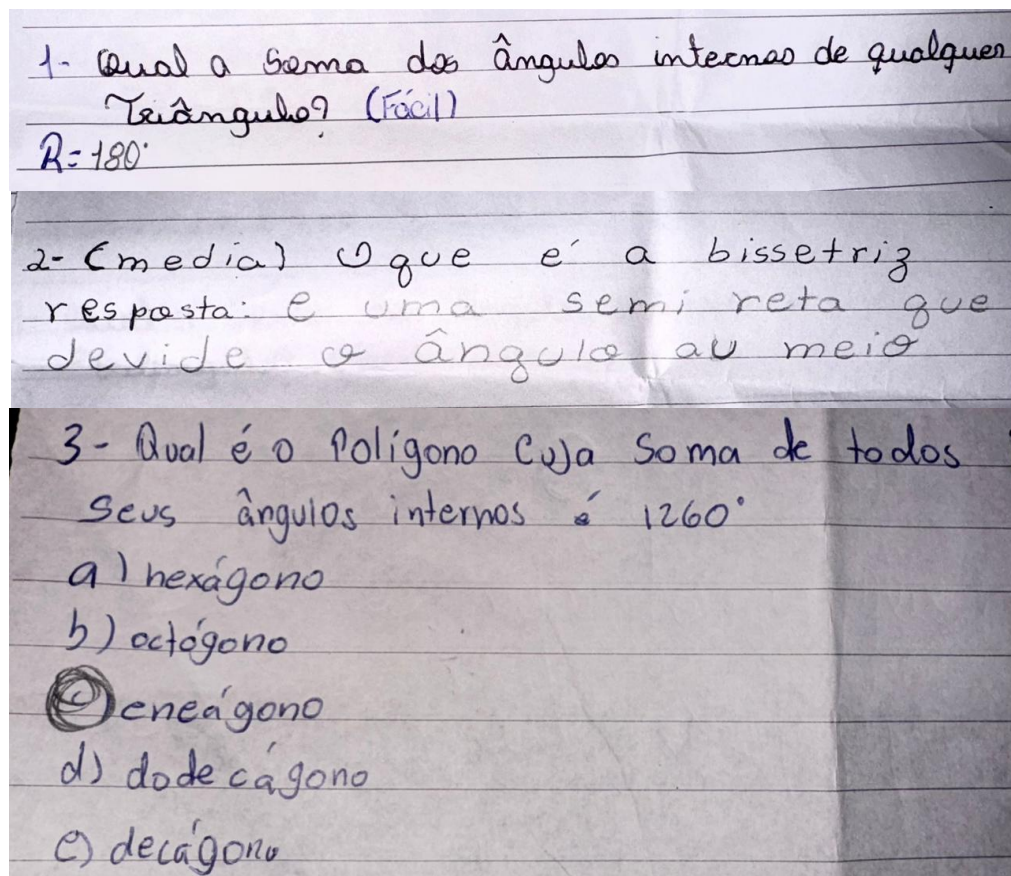 1- Qual a Soma dos ângulos internos de qualquer
Triângulo? (Fácil)
R= 180°
2- (media) O que e' a bissetriz
resposta: e uma semi reta que
devide o ângulo au meio
3- Qual é o Polígono Cuja Soma de todos
Seus ângulos internos é 1260°
a) hexágono
b) octógono
c) eneágono
d) dodecágono
e) decágono